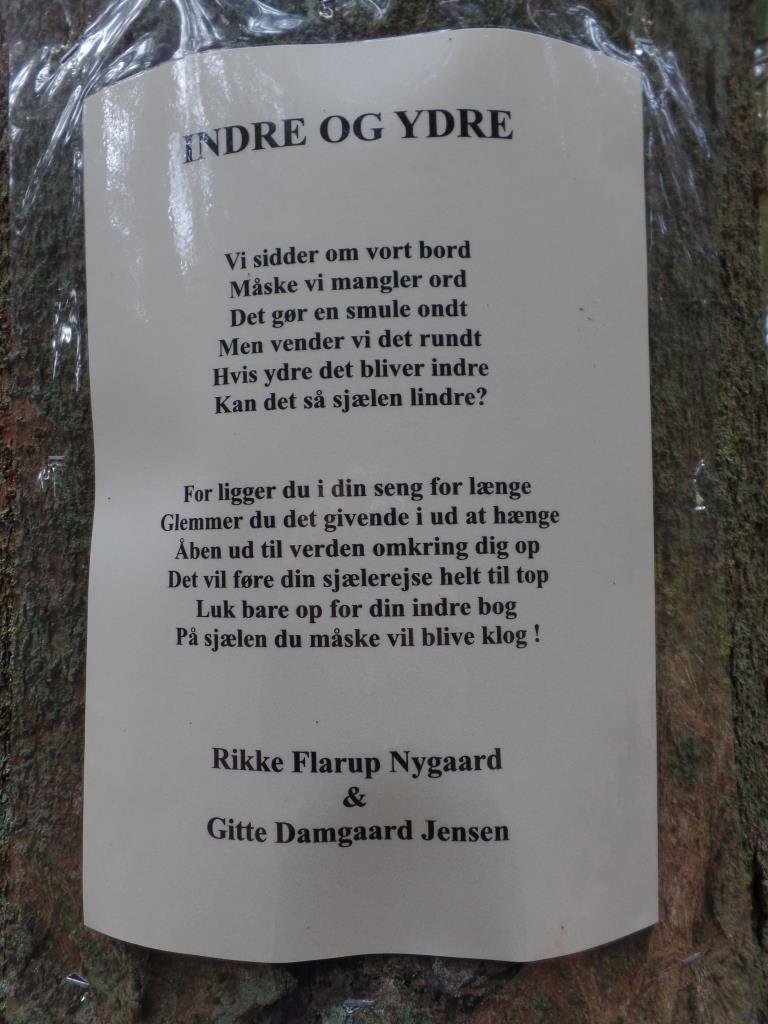 INDRE OG YDRE
Vi sidder om vort bord
Måske vi mangler ord
Det gør en smule ondt
Men vender vi det rundt
Hvis ydre det bliver indre
Kan det så sjælen lindre?
For ligger du i din seng for længe
Glemmer du det givende i ud at hænge
Åben ud til verden omkring dig op
Det vil føre din sjælerejse helt til top
Luk bare op for din indre bog
På sjælen du måske vil blive klog !
Rikke Flarup Nygaard
&
Gitte Damgaard Jensen